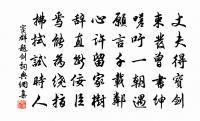 丈夫得寶劍
束髮曾書紳
嗟吁一朝遇
願言千載鄰
心許留家樹
辭直斷佞臣
焉能為繞指
拂拭試時人
竇群題劍詞典網集